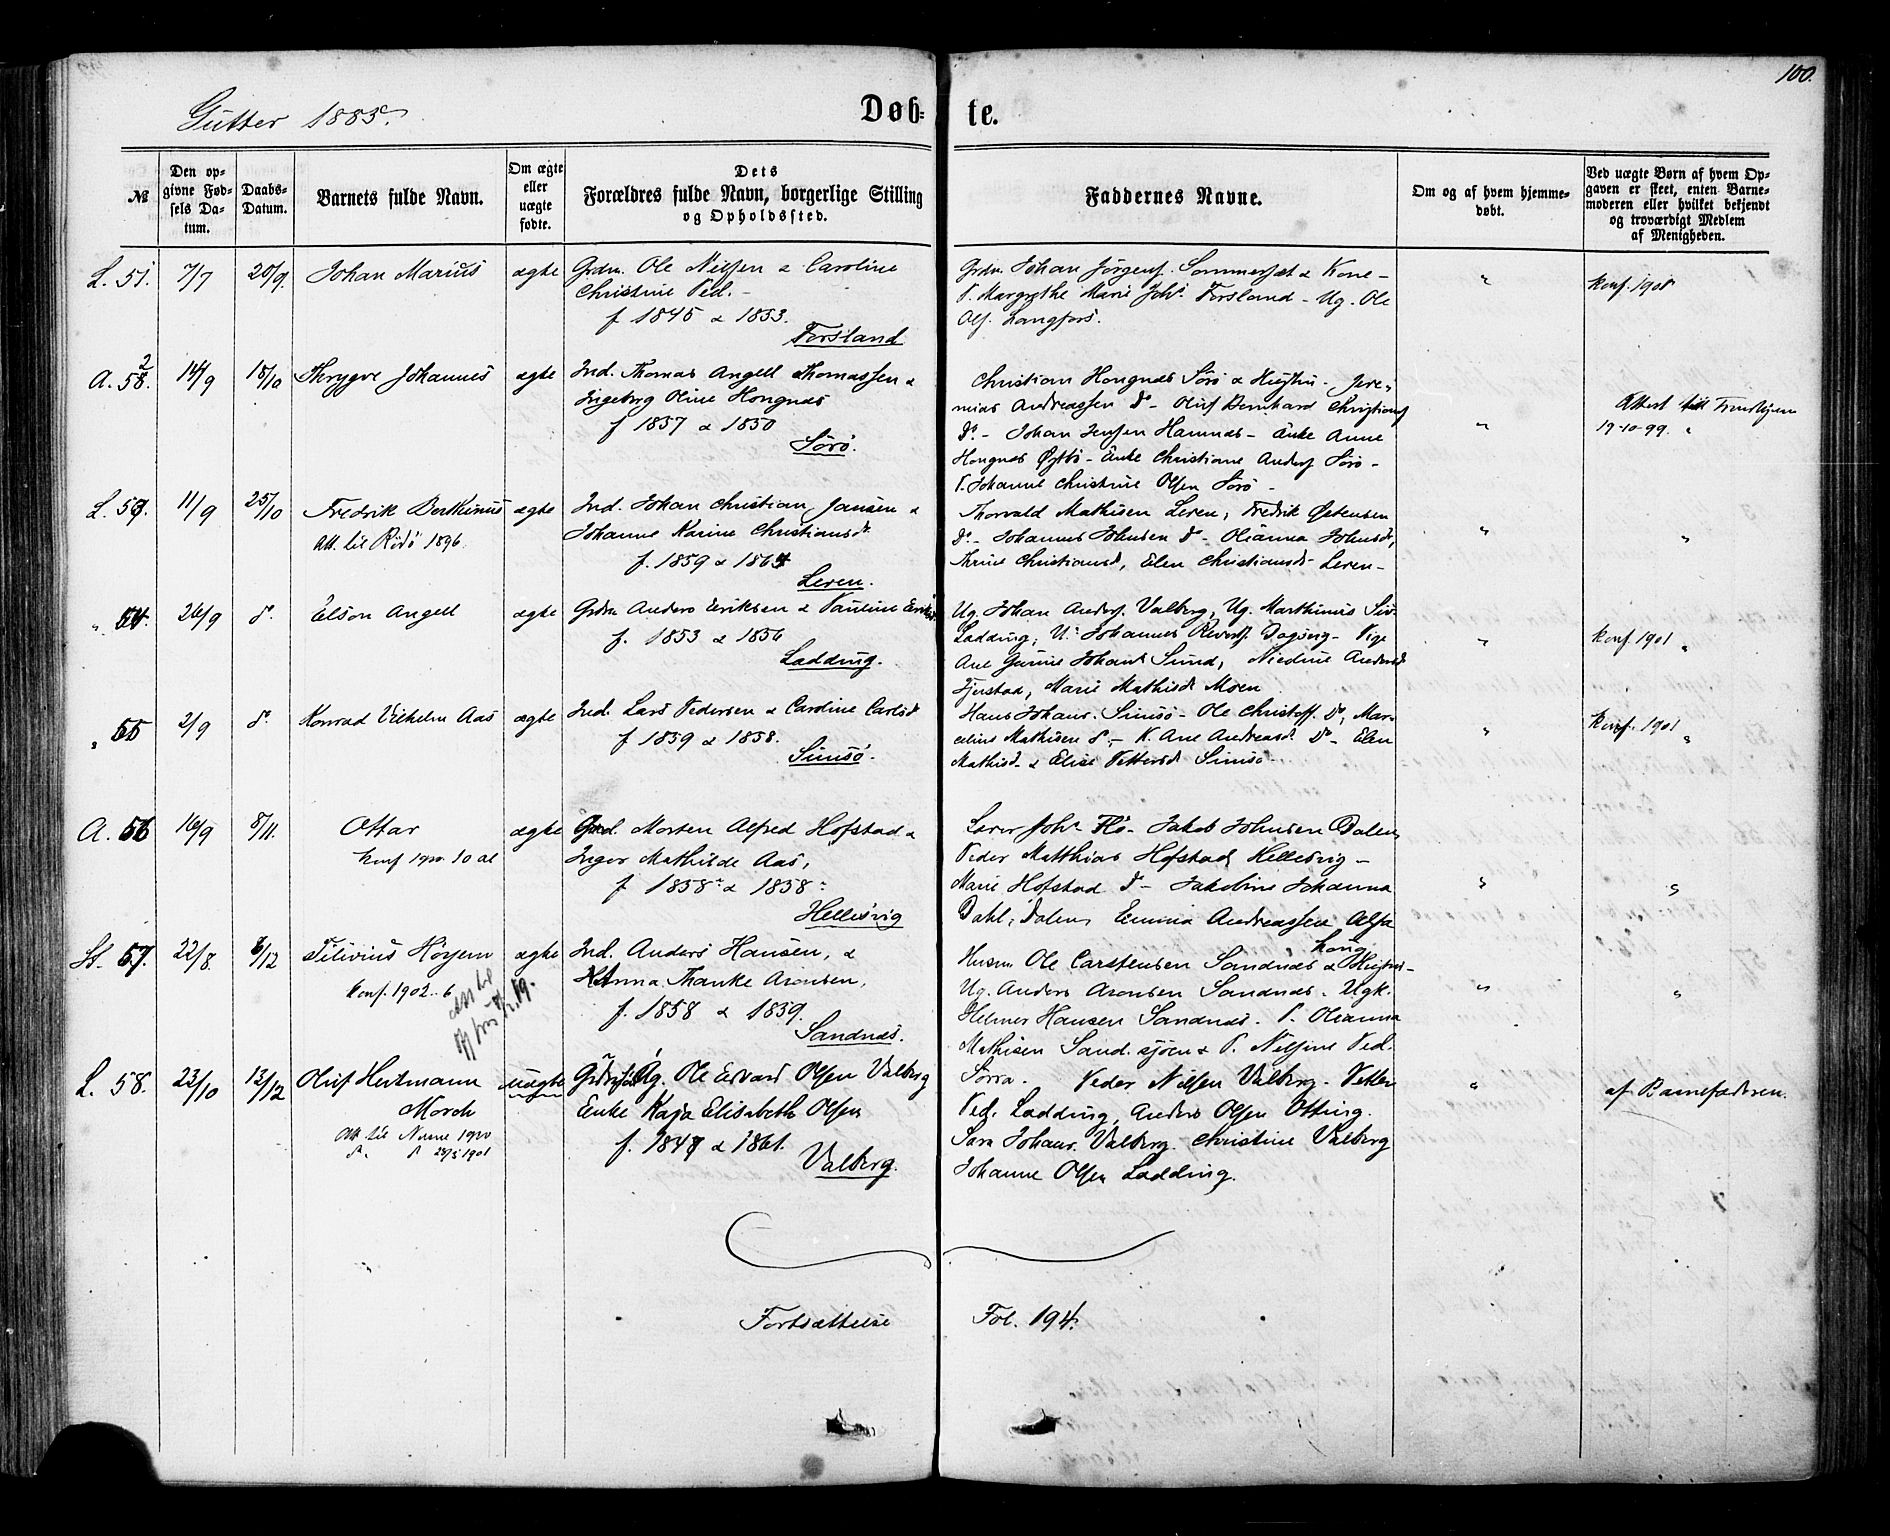 100.
Gutter 1885.
Døb- te.
№
Den opgivne Fødsels Datum.
Daabs-Datum.
Barnets fulde Navn.
Om ægte eller uægte fødte.
Dets Forældres fulde Navn, borgerlige Stilling og Opholdssted.
Faddernes Navne.
Om og af hvem hjemmedøbt.
Ved uægte Børn af hvem Opgaven er skeet, enten Barnemoderen eller hvilket bekjendt og troværdigt Medlem af Menigheden.
L. 51. 7/7 20/9. Johan Marius ægte Grdm. Ole Nilsen & Caroline
Christine Ped. -
f 1845 & 1853.
Forsland
Grdm. Johan Jörgens. Sommersæt & Kone -
P. Margrethe Marie Joh. Forsland - Ug. Ole
Ols. Langfors.
" Konf. 1901
A. 52. 14/9 18/10 Thrygve Johannes ægte Ind. Thomas Angell Thomassen &
Ingeborg Oline Hongnæs
f 1857 & 1850
Sörö.
Christian Hongnæs Sörö & Hustru - Jere-
mias Andreassen do - Oluf Bernhard Christians
do - Johan Jensen Hamnæs - Enke Anne
Hongnæs - Enke Christiane Anders Sörö -
P. Johanne Christine Olsen Sörö -
" Attest till Trondhjem
19-10-99. "
L. 53. 11/9 25/10 Fredrik Berthinus ægte Ind. Johan Christian Jansen &
Att. til Rödö 1896. Johanne Karine Christiansd.
f. 1859 & 1864
Leren.
Thorvald Mathisen Leren, Fredrik Östensen
do - Johannes Johnsen do - Olianna Johnsd,
Thrine Christiansd, Elen Christiansd - Leren -
" "
" 54. 26/9 do. Elson Angell ægte Grdm Anders Eriksen & Pauline
f. 1853 & 1856
Ladding.
Ug. Johan Anders. Valberg, Ug. Marthinus
Ladding, U. Johannes Dagsvig - Pige
Ane Johans Sund, Andersd
Fjerstad, Marie Mathisd Moen
" Konf 1901 "
" 55 2/9 do. Konrad Vilhelm Aas ægte Ind. Lars Pedersen & Caroline Carlsd
f 1859 & 1858.
Simsö.
Hans Johans. Simsö - Ole Christoff. do, Mar-
celius Mathisen do, - K. Ane Andreasd. do - Elen
Mathisd - & Elise Pettersd Simsö -
" Konf. 1901 "
A. 56 16/9 8/11. Ottar ægte Grd. Morten Alfred Hofstad &
Inger Mathilde Aas,
f 1858 & 1858
Hellesvig
Lærer Joh. Flö - Jakob Johnsen Dalen,
Peder Matthias Hofstad Hellesvig -
Marie Hofstad do - Jakobine Johanna
Dahl, Dalen, Emma Andreassen
" "
St. 57. 22/8. 6/12 Höyem ægte Ind. Anders Hansen, &
Konf. 1902. 6 Anna Thanke Aronsen,
f. 1858 & 1859.
Sandnæs.
Husm Ole Carstensen Sandnæs & Hustru -
Ug. Anders Aronsen Sandnæs. Ugk.
Helmer Hansen Sandnæs. P. Olianna
Mathisen Sand.sjöen & P. Nilsine Ped.
Sörra.
" "
L. 58. 23/10 13/12 Oluf Heitmann uægte Ug. Ole Edvard Olsen Valberg
Morch Enke Kaja Elisabeth Olsen
f. 1847 & 1861.
Att til 1900 28/5 1901 Valberg.
Peder Nilsen Valberg - Petter
Ped. Ladding, Anders Olsen Otting.
Sara Johans. Valberg, Christine Valberg
Johanne Olsen Ladding.
" af Barnefaderen.
Fortsættelse Fol. 194.